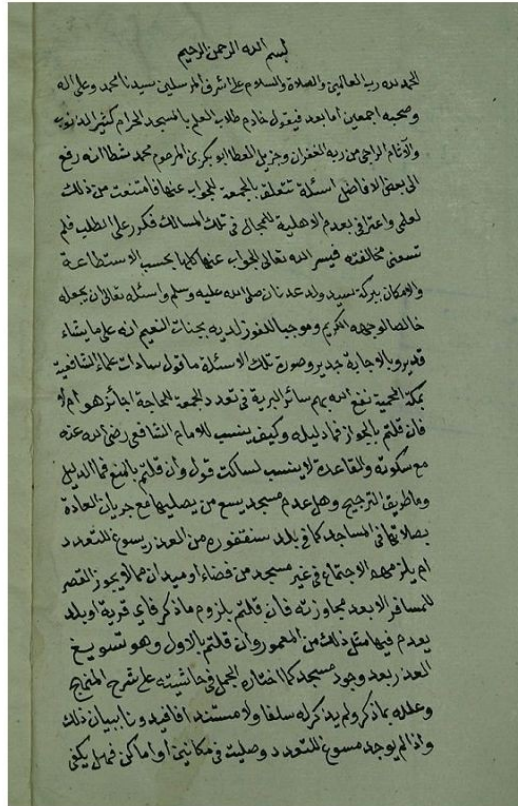 بسم الله الرحمن الرحيم
الحمد لله رب العالمين والصلاة والسلام على اشرف المرسلين سيدنا محمد وعلى اله
وصحبه اجمعين اما بعد فيقول خادم طلاب العلم بالمسجد الحرام كثير الذنوب
والآثام الراجي من ربه الغفران وجزيل العطا ابو بكري بن المرحوم محمد شطا انه رفع
الى بعض الافاضل اسئلة تتعلق بالجمعة للجواب عنها فامتنعت من ذلك
لعلمي واعترافي بعدم الاهلية للمجال في تلك المسالك فكرر علي الطلب فلم
تسعني مخالفته فيسر الله تعالى الجواب عنها كلها بحسب الاستطاعة
والامكان ببركة سيد ولد عدنان صلى الله عليه وسلم واسئله تعالى ان يجعله
خالصا لوجهه الكريم وموجبا للفوز لديه بجنات النعيم انه على ما يشاء
قدير وبالاجابة جدير وصورة تلك الاسئلة ما قول سادات علماء الشافعية
بمكة المحمية نفع الله بهم سائر البرية في تعدد الجمعة للحاجة اجائز هو ام لا
فان قلتم بالجواز فما دليله وكيف ينسب للامام الشافعي رضي الله عنه
مع سكوته والقاعدة لا ينسب لساكت قول وان قلتم بالمنع فما الدليل
وما طريق الترجيح وهل عدم مسجد يسع من يصليها مع جريان العادة
بصلاتها في المساجد كما في بلد سنقفوره من العذر يسوغ للتعدد
ام يلزمهم الاجتماع في غير مسجد من فضاء او ميدان مما لا يجوز القصر
للمسافر الا بعد مجاوزته فان قلتم بلزوم ما ذكر فاي قرية او بلد
يعدم فيها مثل ذلك من المعمور وان قلتم بالاول وهو تسويغ
العذر بعدم وجود مسجد كما اختاره الجمل في حاشيته على شرح المنهج
وعلله بما ذكر ولم يذكر له سلفا ولا مستندا فافيدونا ببيان ذلك
واذا لم يوجد مسوغ للتعدد وصليت في مكانين او اماكن فهل يكفي